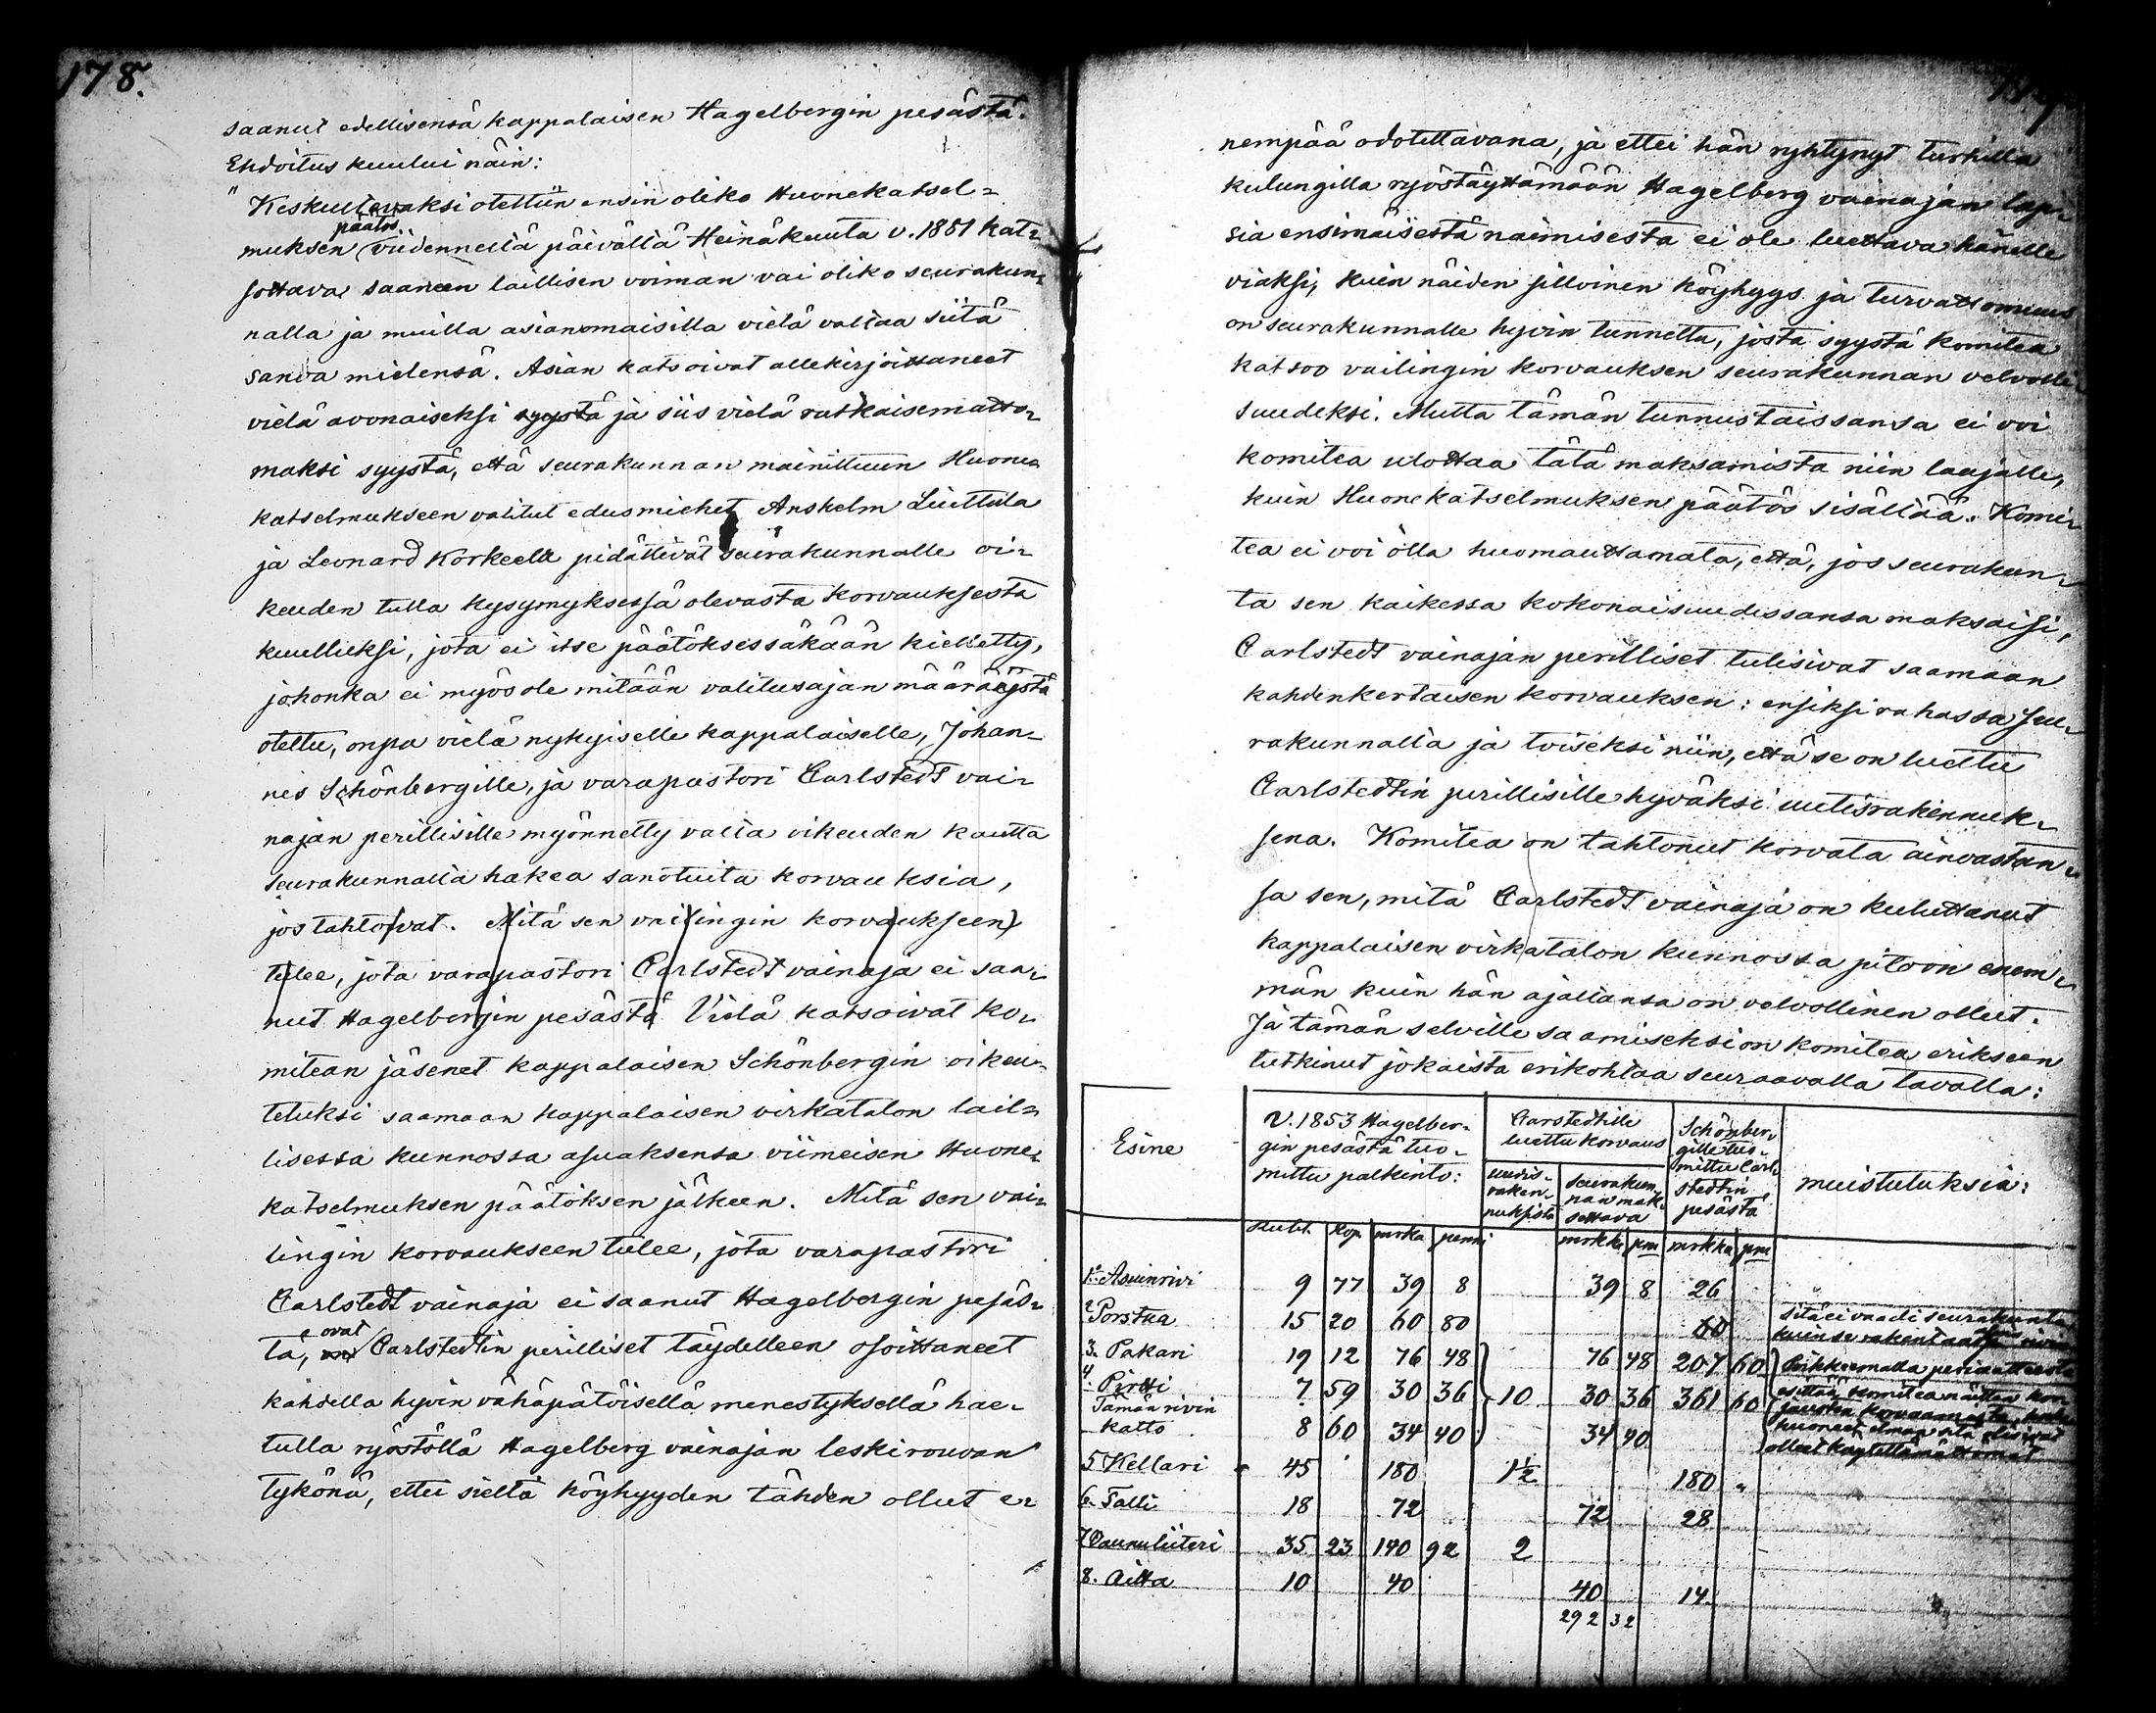 178.
saanut edellisensä kappalaisen Hagelbergin pesästä.
Ehdoitus kuului näin:
" Keskusteltavaksi otettiin ensin oliko Huonekatsel-
päätös
muksen viidennellä päivällä Heinäkuuta v. 1881 kat-
sottava saaneen laillisen voiman vai oliko seurakun-
nalla ja muilla asianomaisilla vielä valtaa siitä
sanoa mielensä. Asian katsoivat allekirjoittaneet
vielä avonaiseksi syystä ja siis vielä ratkaisematto-
maksi syystä, että seurakunnan mainittuun Huone-
katselmukseen valitut edusmiehet Anshelm Liuttula
ja Leonard Korkeela pidättivät seurakunnalle oi-
keuden tulla kysymyksessä olevasta korvauksesta
kuulluksi, jota ei itse päätöksessäkään kielletty,
johonka ei myös ole mitään valitusajan määräystä
otettu, onpa vielä nykyiselle kappalaiselle, Johan-
nes Schönbergille, ja varapastori Carlstedt vai-
najan perillisille myönnetty valta oikeuden kautta
seurakunnalta hakea sanotuita korvauksia,
jos tahtovat. Mitä sen vailingin korvaukseen
tulee, jota varapastori Carlstedt vainaja ei saa-
nut Hagelbergin pesästä Vielä katsoivat ko-
mitean jäsenet kappalaisen Schönbergin oikeu-
tetuksi saamaan kappalaisen virkatalon lail-
lisessa kunnossa asuaksensa viimeisen Huone-
katselmuksen päätöksen jälkeen. Mitä sen vai-
lingin korvaukseen tulee, jota varapastori
Carlstedt vainaja ei saanut Hagelbergin pesäs-
ovat
tä, on Carlstedtin perilliset täydelleen osoittaneet
kahdella hyvin vähäpätöisellä menestyksellä hae-
tulla ryöstöllä Hagelberg vainajan leskirouvan
tykönä, ettei sieltä köyhyyden tähden ollut e-
nempää odotettavana, ja ettei hän ryhtynyt turhilla
kulungilla ryöstäyttämään Hagelberg vainajan lap-
sia ensimäisestä naimisesta ei ole luettava hänelle
viaksi, kuin näiden silloinen köyhyys ja turvattomuus
on seurakunnalle hyvin tunnettu, josta syystä komitea
katsoo vailingin korvauksen seurakunnan velvolli-
suudeksi. Mutta tämän tunnustaissansa ei voi
komitea ulottaa tätä maksamista niin laajalle,
kuin Huonekatselmuksen päätös sisältää. Komi-
tea ei voi olla huomauttamata, että, jos seurakun-
ta sen kaikessa kokonaisuudessansa maksaisi,
Carlstedt vainajan perilliset tulisivat saamaan
kahdenkertaisen korvauksen: ensiksi rahassa seu-
rakunnalta ja toiseksi niin, että se on luettu
Carlstedtin perillisille hyväksi uutisrakennuk-
sena. Komitea on tahtonut korvata ainoastan-
sa sen, mitä Carlstedt vainaja on kuluttanut
kappalaisen virkatalon kunnossa pitoon enem-
män kuin hän ajallansa on velvollinen ollut.
Ja tämän selville saamiseksi on komitea erikseen
tutkinut jokaista erikohtaa seuraavalla tavalla:
Esine | v. 1853 Hagelber-gin pesästä tuo-mittu palkinto: | Carstedtille luettu korvaus | Schönber-gille tuo-mittu Carl-stedtin pesästä | muistutuksia:
uudis-raken-nuksista | seurakun-nan mak-settava
Rubl. | kop | mrka | penni | mrkka | pm | mrkka | pm
1. Asuinrivi 9 77 39 8 39 8 26
2 Porstua 15 20 60 80 60 sitä ei vaadi seurakunta
3. Pakari 19 12 76 48 76 48 207 60
4. Pirtti 7 59 30 36 10 30 36 361 60
Tämän rivin
katto 8 60 34 40 34 40
huoneet ilman sitä olisivat
olleet käytettämättömät
5 Kellari 45 180 1½ 180 "
6. Talli 18 72 72 28
7 Vaunuliiteri 35 23 140 92 2
8. Aitta 10 40 40 14
292 32